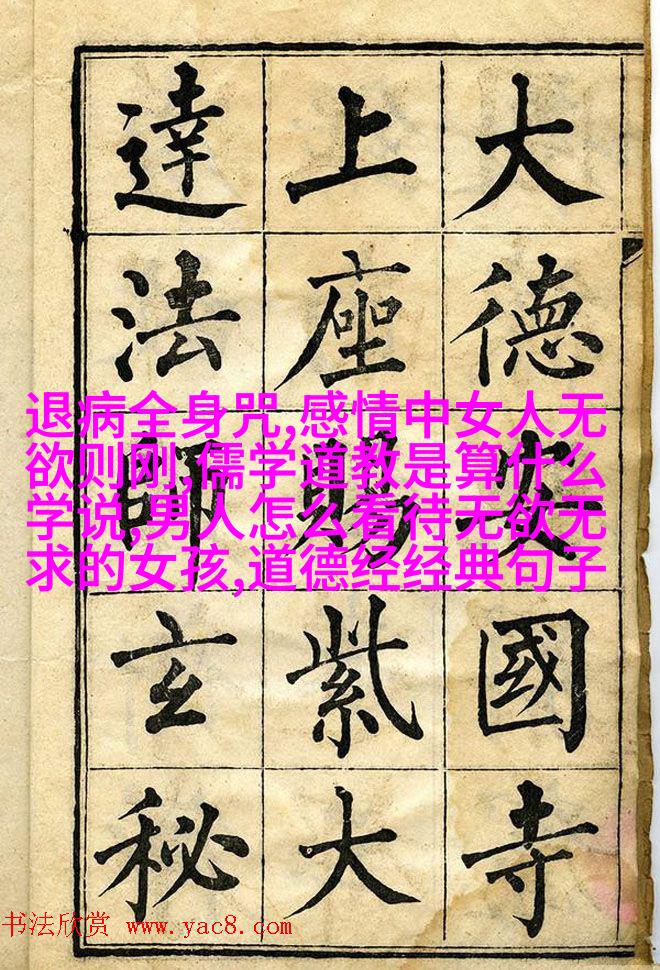 大德安國寺
上座賜紫大
達法師玄秘
退病全身咒,感情中女人无
欲则刚,儒学道教是算什么
学说,男人怎么看待无欲无
求的女孩,道德经经典句子
书法欣赏 www.yac8.com